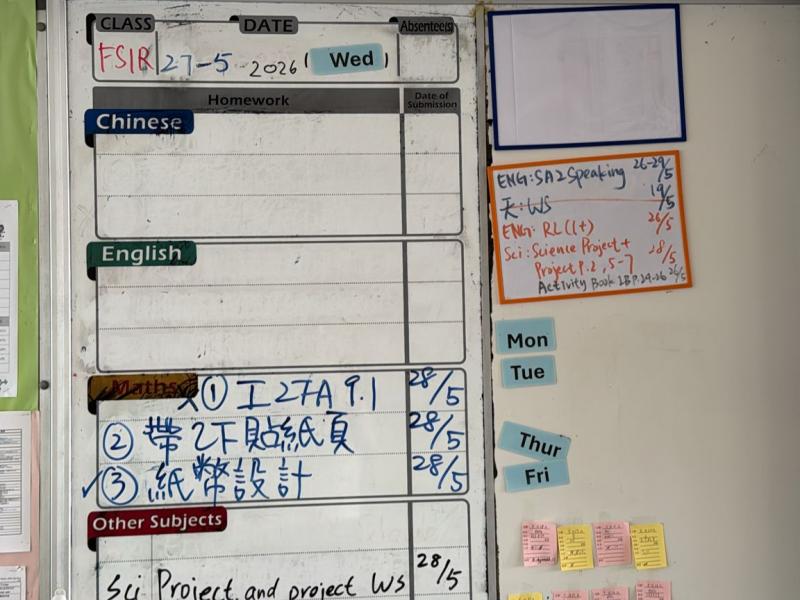 CLASS DATE Absentee(s)
27-5 2026 ( Wed )
Homework Date of Submission
Chinese
English
Maths ① 工27A 28/5
② 帶2下貼紙頁 28/5
③ 紙幣設計 28/5
Other Subjects
Sci Project and project Ws 28/5
ENG: SA2 Speaking 26-29/5
WS 19/5
ENG: RL (1+) 26/5
Sci: Science Project + 28/5
Project P.2, 5-7
Activity Book 2B P.24-26 26/5
Mon
Tue
Thur
Fri